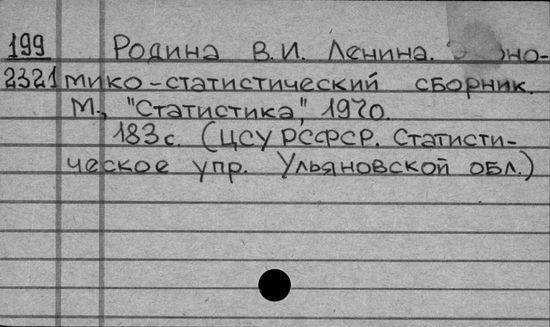 199 Родина В.И. Ленина. Эконо-
2321 мико-статистический сборник.
М., "Статистика," 1970.
183 с. (ЦСУ РСФСР. Статисти-
ческое упр. Ульяновской обл.)